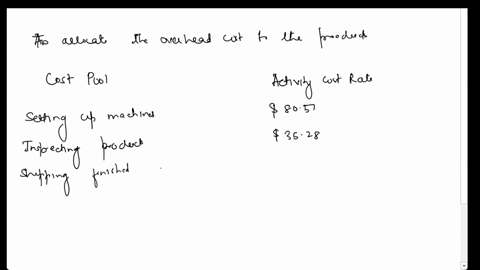 To allocate the overhead cost to the product
Cost Pool Activity Cost Rate
Setting up machines $ 80.51
Inspecting products $ 35.28
Shipping finished